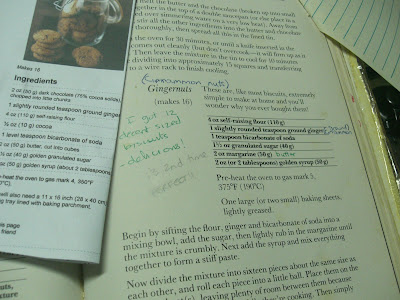 melt the butter and the chocolate (broken up into small
together in the top of a double saucepan (or else place in a
over simmering water on a very low heat). Away from
stir all the other ingredients into the butter and chocolate
thoroughly, then spread all this in the lined tin.
the oven for 30 minutes, or until a knife inserted in the
comes out cleanly (but don't overcook—it will firm up as it
Then leave the mixture in the tin to cool for 10 minutes
dividing into approximately 15 squares and transferring
to a wire rack to finish cooling.
Makes 16
Ingredients
2 oz (50 g) dark chocolate (75% cocoa solids),
chopped into little chunks
1 slightly rounded teaspoon ground ginger
4 oz (110 g) self-raising flour
(10 g) cocoa
1 level teaspoon bicarbonate of soda
2 oz (50 g) butter, cut into cubes
(40 g) golden granulated sugar
(50 g) golden syrup (about 2 tablespoons)
Pre-heat the oven to gas mark 4, 350°F
will also need a 11 x 16 inch (28 x 40 cm)
baking tray lined with baking parchment.
this page
friend
nuts)
Gingernuts
(makes 16)
These are, like most biscuits, extremely
simple to make at home and you'll
wonder why you ever bought them!
I got 12
decent sized
biscuits
- delicious!
2nd time
perfect!
4 oz self-raising flour (110 g)
1 slightly rounded teaspoon ground ginger
1 teaspoon bicarbonate of soda
1½ oz granulated sugar (40 g)
2 oz margarine (50 g) butter
2 oz (or 2 tablespoons) golden syrup (50 g)
Pre-heat the oven to gas mark 5,
375°F (190°C)
One large (or two small) baking sheets,
lightly greased.
Begin by sifting the flour, ginger and bicarbonate of soda into a
mixing bowl, add the sugar, then lightly rub in the margarine until
the mixture is crumbly. Next add the syrup and mix everything
together to form a stiff paste.
Now divide the mixture into sixteen pieces about the same size as
each other, and roll each piece into a little ball. Place them on the
leaving plenty of room between them because
cooking. Then simply